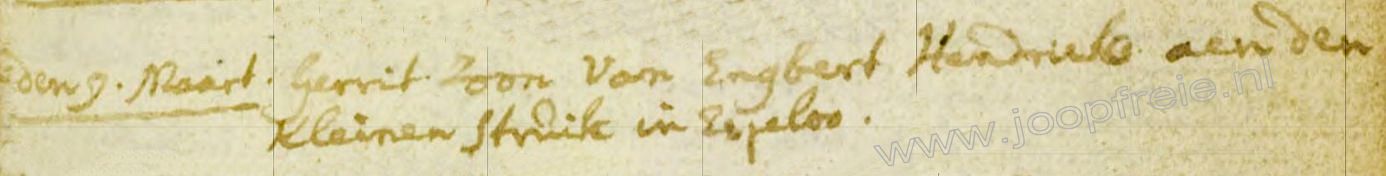 den 9. Maart. Gerrit Zoon Van Engbert Hendriks aen den
Kleinen Struik in Espeloo.
www.joopfreie.nl